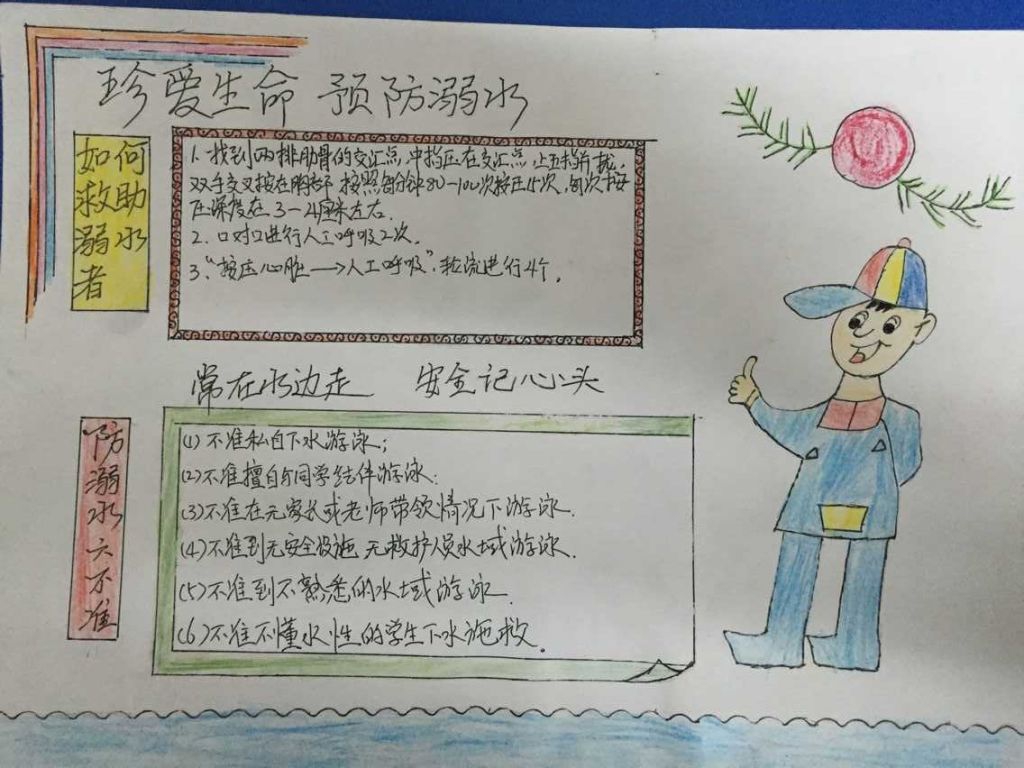 珍爱生命 预防溺水
如何
救助
溺水
者
1、找到两排肋骨的交汇点,中指压在交汇点,上五指并拢,
双手交叉按在胸部 按照每分钟80-100次按压15次,每次按
压深度在 3-4厘米左右.
2、口对口进行人工呼吸2次.
3、“按压心脏—>人工呼吸”,轮流进行4个.
常在水边走 安全记心头
防溺水六不准
(1)不准私自下水游泳;
(2)不准擅自与同学结伴游泳:
(3)不准在无家长或老师带领情况下游泳.
(4)不准到无安全设施 无救护人员水域游泳.
(5)不准到不熟悉的水域游泳.
(6)不准不懂水性的学生下水施救.